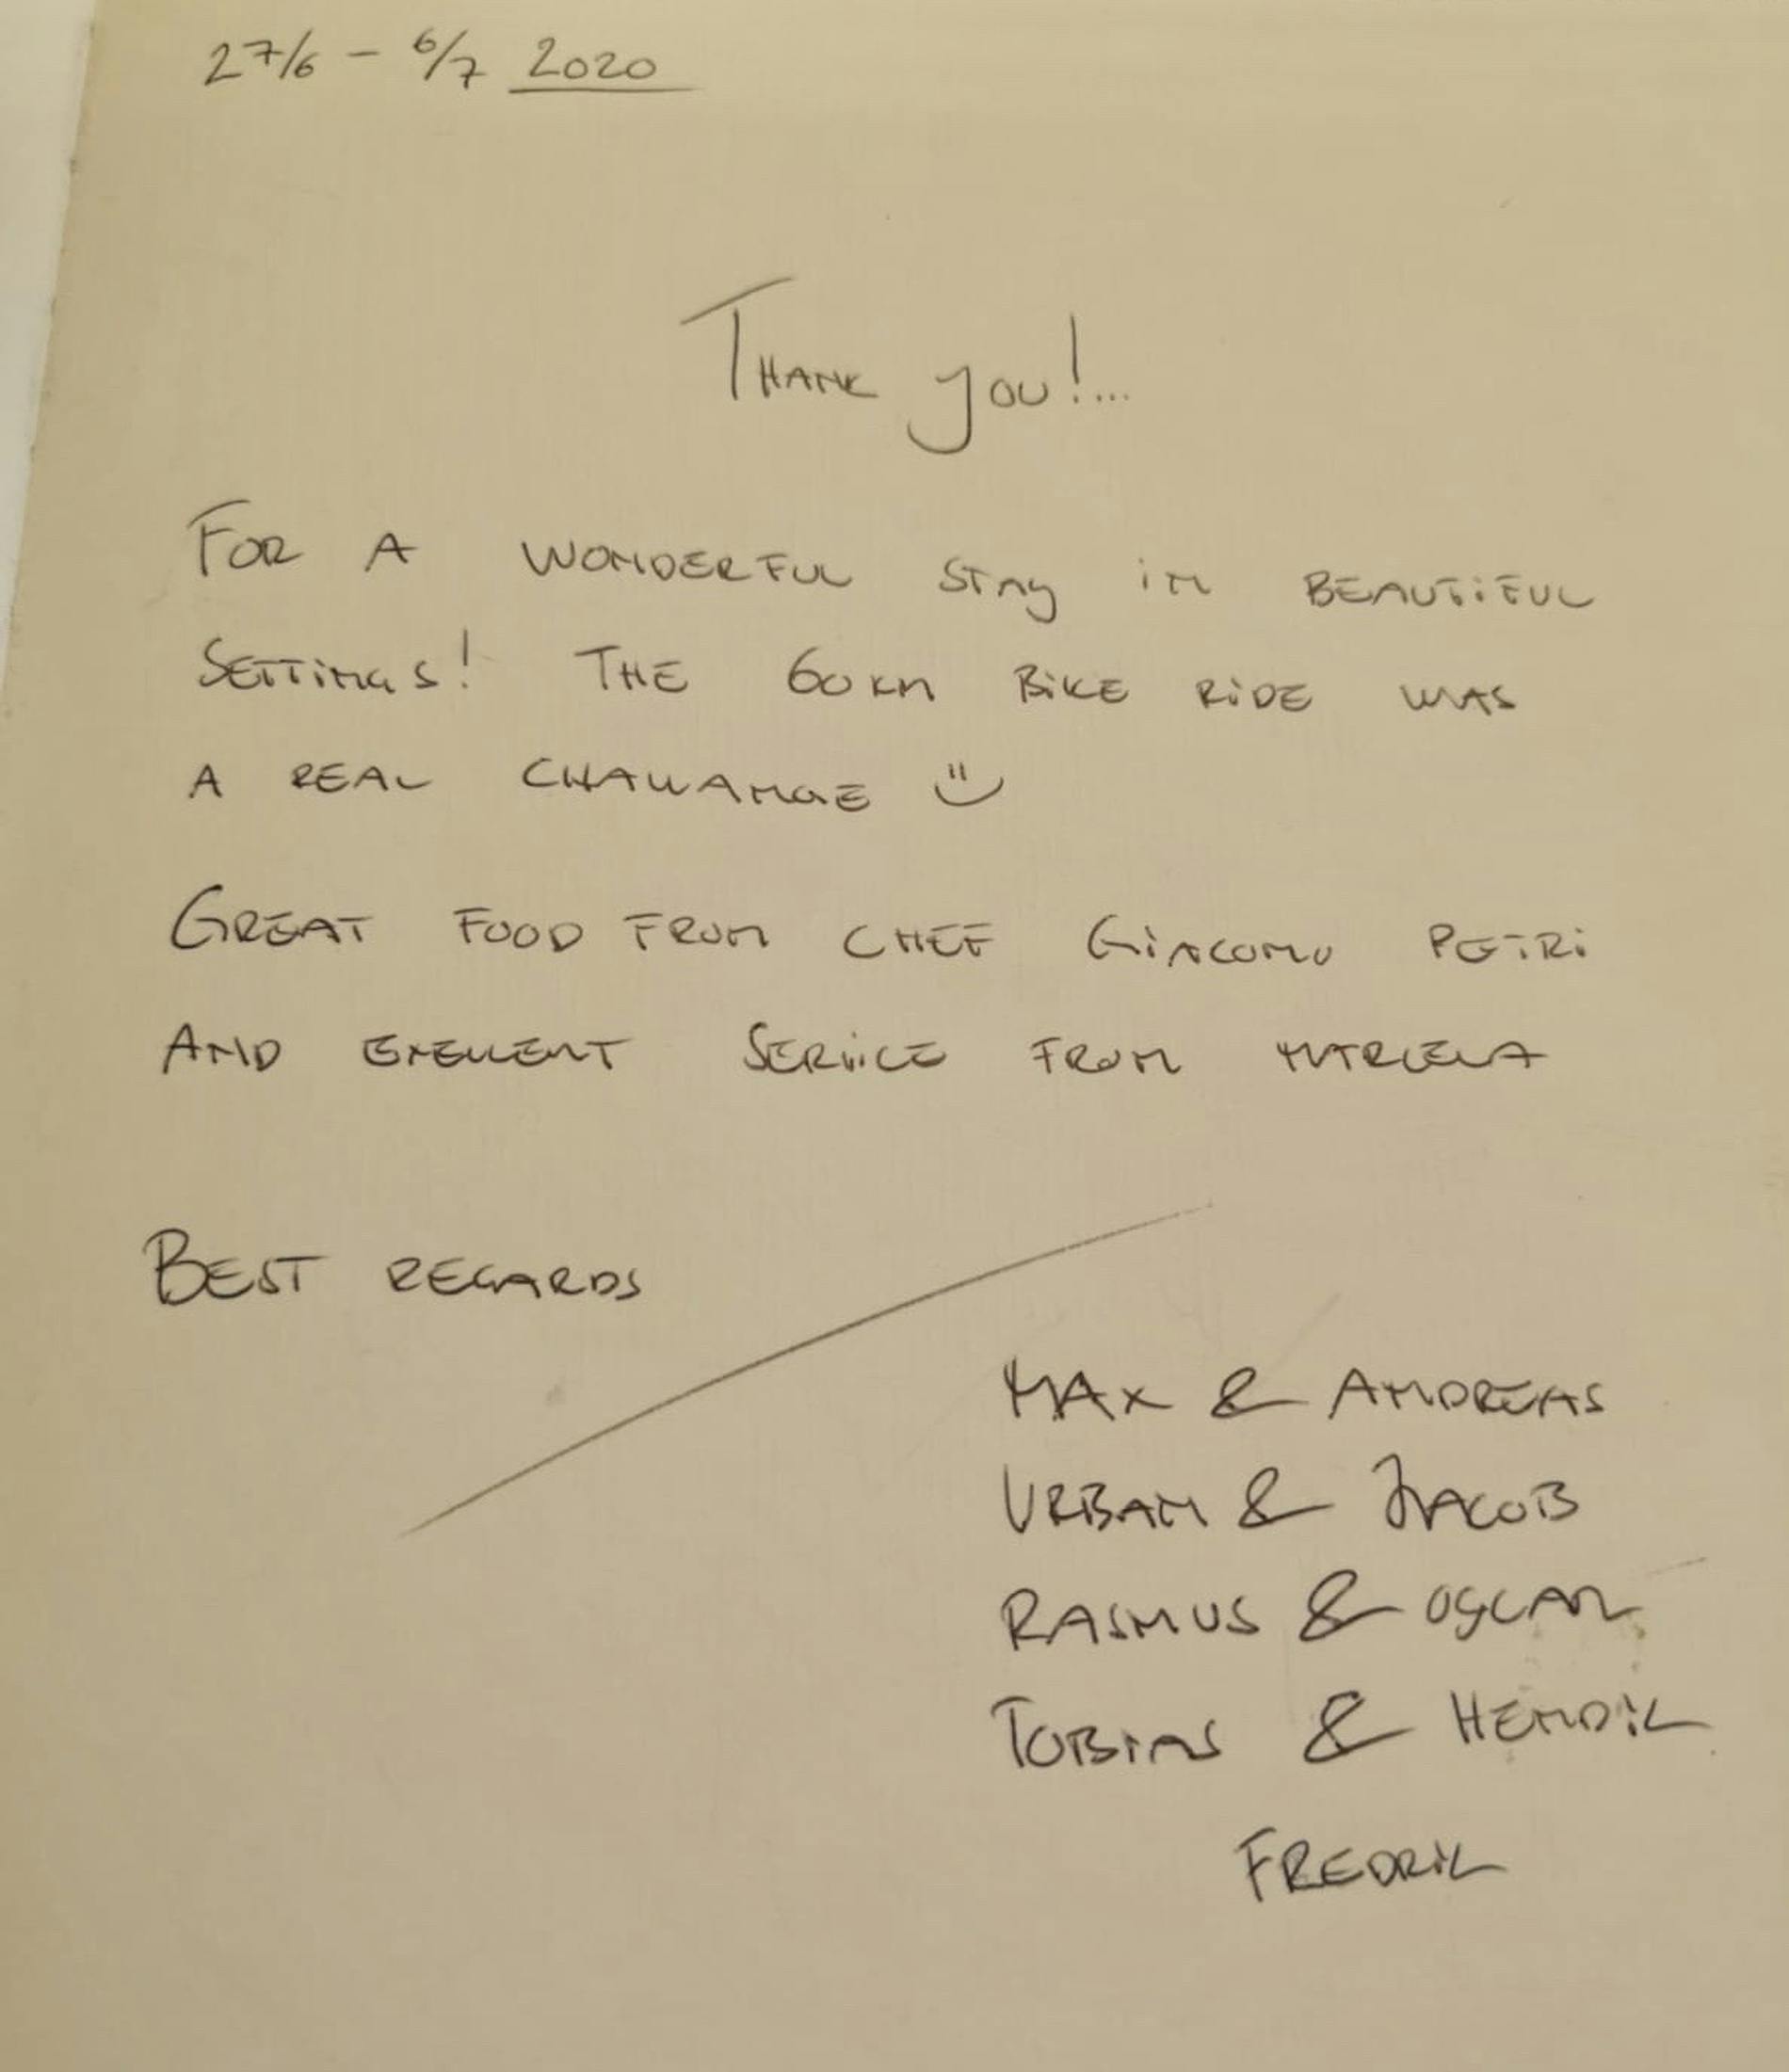 27/6 - 6/7 2020
THANK YOU!...
FOR A WONDERFUL STAY IN BEAUTIFUL
SETTINGS! THE 60KM BIKE RIDE WAS
A REAL CHALLANGE :)
GREAT FOOD FROM CHEF GIACOMO PETRI
AND EXELLENT SERVICE FROM MARCELA
BEST REGARDS
MAX & ANDREAS
URBAN & JACOB
RASMUS & OSCAR
TOBIAS & HENDIK
FREDRIK